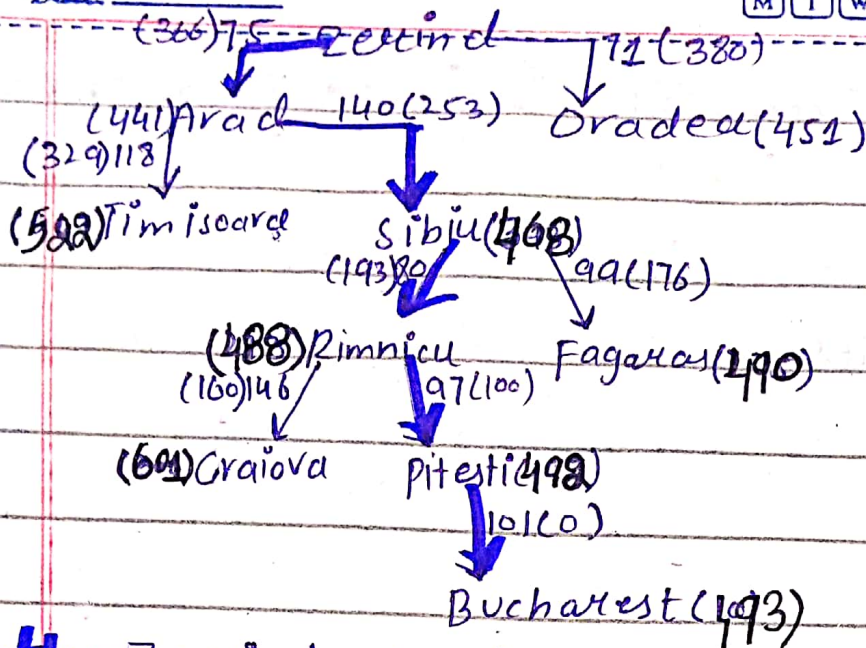 M T W
(366)75 Zerind 71(380)
(441)Arad 140(253) Oradea(451)
(329)118
(522)Timisoara Sibiu(468)
(193)80 99(176)
(488)Rimnicu Fagaras(490)
(160)146 97(100)
(601)Craiova Pitesti(492)
101(0)
Bucharest(493)